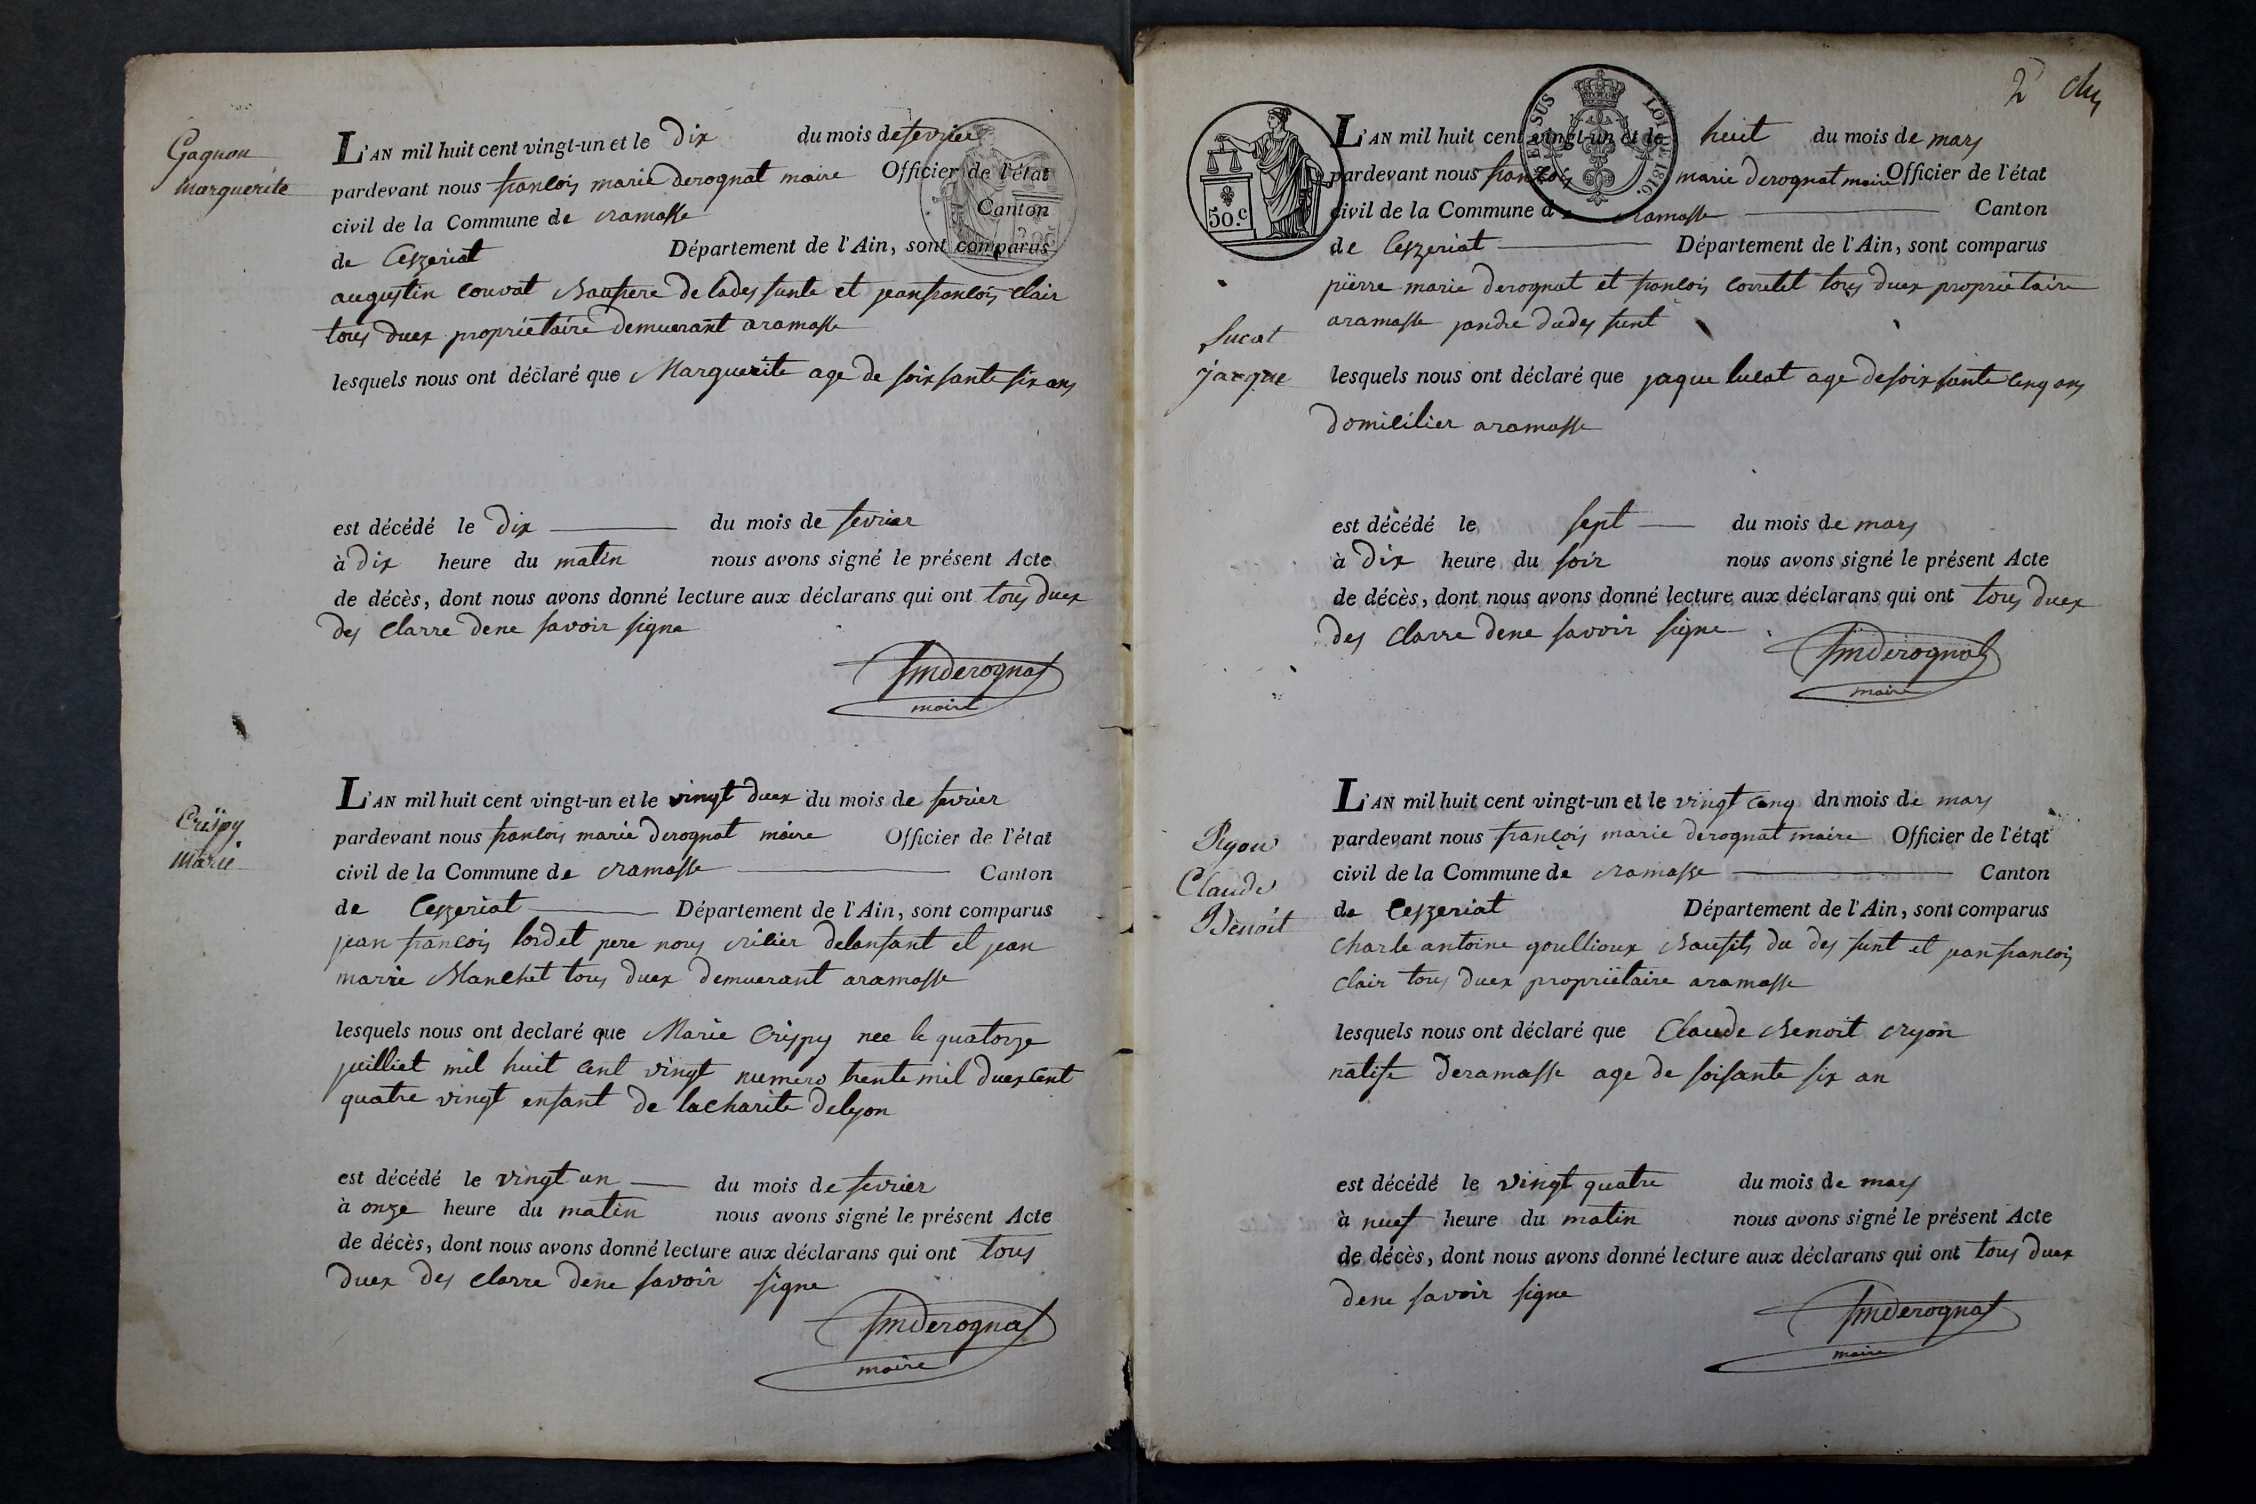 Gagnon
marguerite
L'AN mil huit cent vingt-un et le dix du mois de fevrier
pardevant nous francois marie derognat maire Officier de l'état
civil de la Commune de ramasse Canton
de Ceyzeriat Département de l'Ain, sont comparus
augustin couvat Baufrere de lades funte et jean francois clair
tous duex propriétaire demuerant aramasse
lesquels nous ont déclaré que Marguerite age de soixsante six ans
est décédé le dix du mois de fevrier
à dix heure du matin nous avons signé le présent Acte
de décès, dont nous avons donné lecture aux déclarans qui ont tous duex
des clarre dene savoir signe
fmderognat
maire
Crispy
marie
L'AN mil huit cent vingt-un et le vingt duex du mois de fevrier
pardevant nous francois marie derognat maire Officier de l'état
civil de la Commune de ramasse Canton
de Ceyzeriat Département de l'Ain, sont comparus
jean francois lordet pere nous ricier delanfant et jean
marie Blanchet tous duex demuerant aramasse
lesquels nous ont declaré que Marie Crispy nee le quatorze
juilliet mil huit cent vingt numero trente mil duex cent
quatre vingt enfant de lacharite delyon
est décédé le vingt un du mois de fevrier
à onze heure du matin nous avons signé le présent Acte
de décès, dont nous avons donné lecture aux déclarans qui ont tous
duex des clarre dene savoir signe
fmderognat
maire
2
50.c
LOI DE 1816.
L'AN mil huit cent vingt-un et le huit du mois de mars
pardevant nous francois marie derognat maire Officier de l'état
civil de la Commune de ramasse Canton
de Ceyzeriat Département de l'Ain, sont comparus
pierre marie derognat et francois corretet tous duex propriétaire
aramasse jandre dudes funt
Lucat
jacque
lesquels nous ont déclaré que jaque lucat age desoixsante cinq ans
domicilier aramasse
est décédé le sept du mois de mars
à dix heure du soir nous avons signé le présent Acte
de décès, dont nous avons donné lecture aux déclarans qui ont tous duex
des clarre dene savoir signe
fmderognat
maire
Ryon
Claude
Benoit
L'AN mil huit cent vingt-un et le vingt cinq dn mois de mars
pardevant nous francois marie derognat maire Officier de l'état
civil de la Commune de ramasse Canton
de Ceyzeriat Département de l'Ain, sont comparus
charle antoine goullioux Baufils du des funt et jean francois
clair tous duex propriétaire aramasse
lesquels nous ont déclaré que Claude Benoit ryon
natife deramasse age de soisante six an
est décédé le vingt quatre du mois de mars
à nuef heure du matin nous avons signé le présent Acte
de décès, dont nous avons donné lecture aux déclarans qui ont tous duex
dene savoir signe
fmderognat
maire